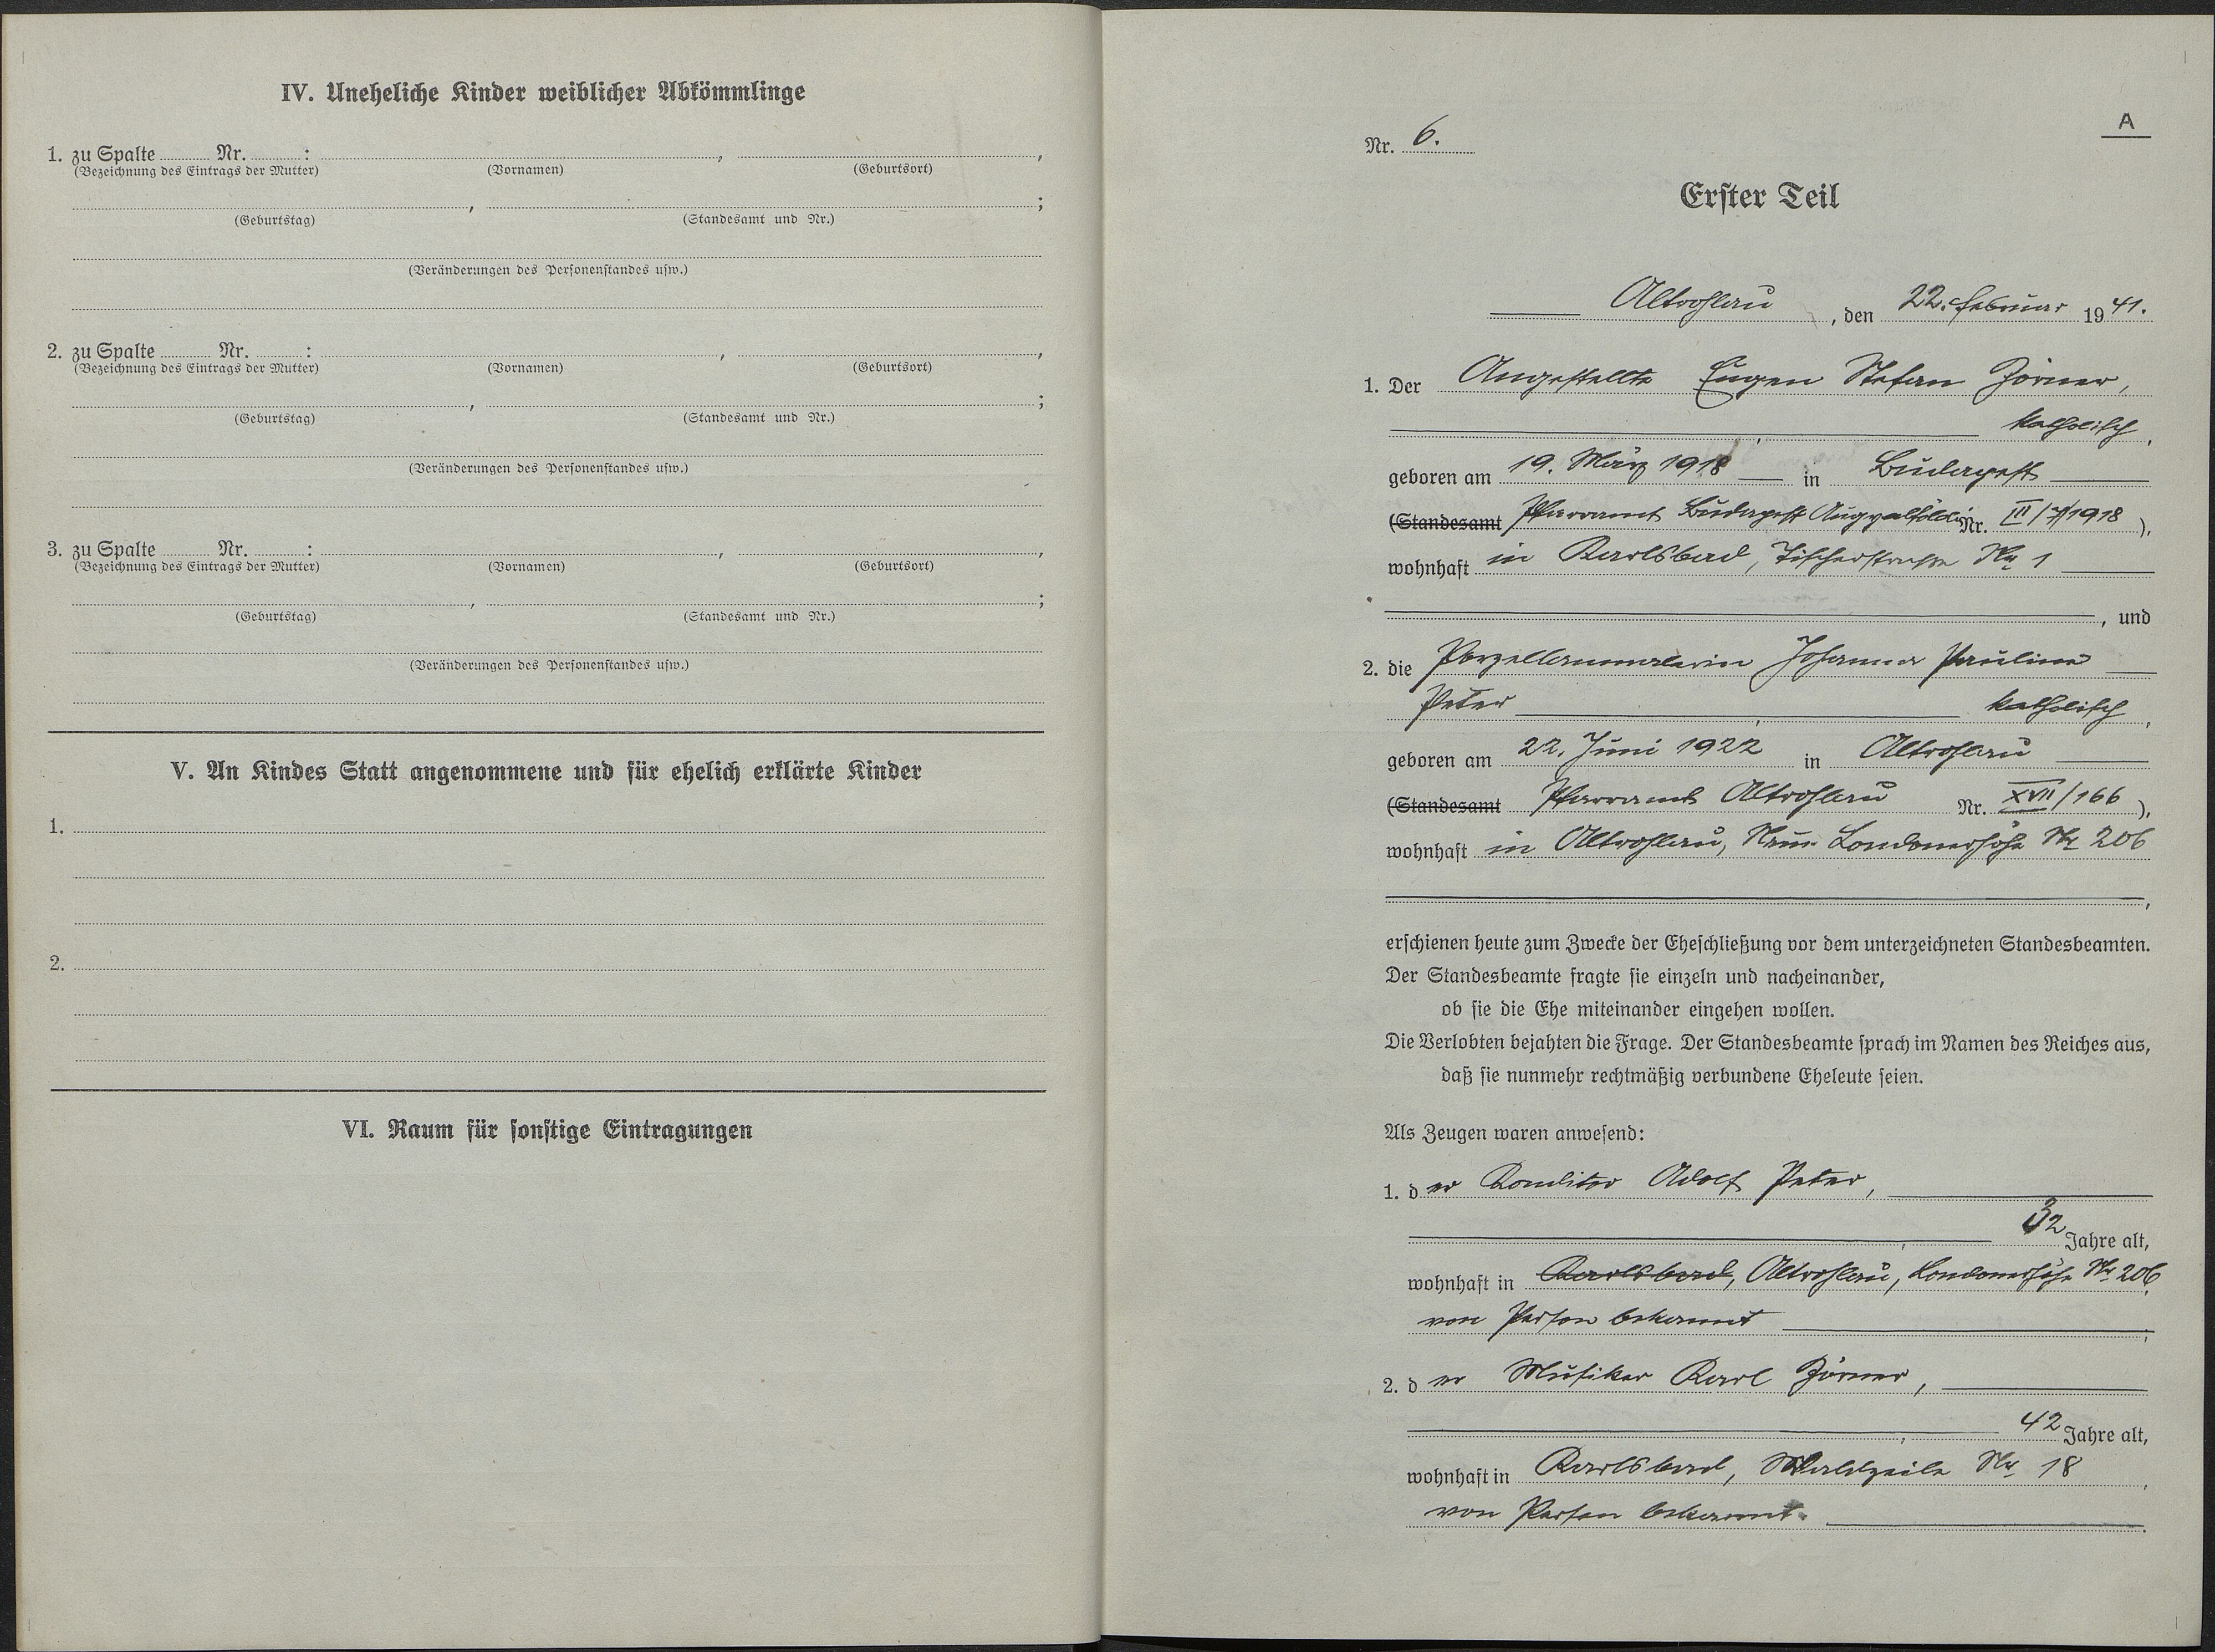 IV. Uneheliche Kinder weiblicher Abkömmlinge
1. zu Spalte Nr. : , ,
(Bezeichnung des Eintrags der Mutter) (Vornamen) (Geburtsort)
, ;
(Geburtstag) (Standesamt und Nr.)
(Veränderungen des Personenstandes usw.)
2. zu Spalte Nr. : , ,
(Bezeichnung des Eintrags der Mutter) (Vornamen) (Geburtsort)
, ;
(Geburtstag) (Standesamt und Nr.)
(Veränderungen des Personenstandes usw.)
3. zu Spalte Nr. : , ,
(Bezeichnung des Eintrags der Mutter) (Vornamen) (Geburtsort)
, ;
(Geburtstag) (Standesamt und Nr.)
(Veränderungen des Personenstandes usw.)
V. An Kindes Statt angenommene und für ehelich erklärte Kinder
1.
2.
VI. Raum für sonstige Eintragungen
A
Nr. 6.
Erster Teil
Altrohlau, den 22. Februar 1941.
1. Der Angestellte Eugen Stefan Zörner,
katholisch,
geboren am 19. März 1918 in Budapest
(Standesamt Pfarramt Budapest Nr. III/ 1918),
wohnhaft in Karlsbad, Tischerstraße Nr 1
, und
2. die Porzellanmalerin Johanna Pauline
Peter katholisch,
geboren am 22. Juni 1922 in Altrohlau
(Standesamt Pfarramt Altrohlau Nr. XVII/166),
wohnhaft in Altrohlau, Londonerhöhe Nr 206
,
erschienen heute zum Zwecke der Eheschließung vor dem unterzeichneten Standesbeamten.
Der Standesbeamte fragte sie einzeln und nacheinander,
ob sie die Ehe miteinander eingehen wollen.
Die Verlobten bejahten die Frage. Der Standesbeamte sprach im Namen des Reiches aus,
daß sie nunmehr rechtmäßig verbundene Eheleute seien.
Als Zeugen waren anwesend:
1. der Konditor Adolf Peter,
32 Jahre alt,
wohnhaft in Karlsbad, Altrohlau, Londonerhöhe Nr 206
von Person bekannt ;
2. der Musiker Karl Zörner,
42 Jahre alt,
wohnhaft in Karlsbad, Waldzeile Nr 18,
von Person bekannt.